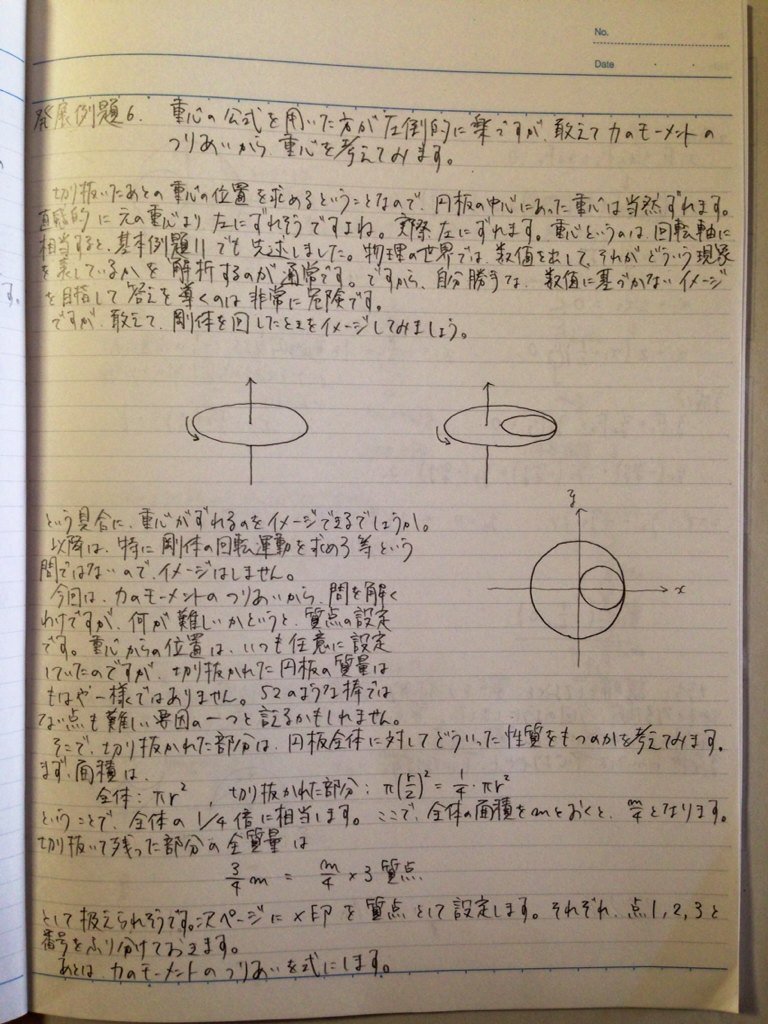 No.
Date
発展例題6. 重心の公式を用いた方が圧倒的に楽ですが、敢えて力のモーメントの
つりあいから重心を考えてみます。
切り抜いたあとの重心の位置を求めるということなので、円板の中心にあった重心は当然ずれます。
直感的に元の重心より左にずれそうですよね。実際左にずれます。重心というのは、回転軸に
相当すると、基本例題11でも先述しました。物理の世界では、数値を出して、それがどういう現象
を表しているかを解析するのが通常です。ですから、自分勝手な、数値に基づかないイメージ
を目指して答えを導くのは非常に危険です。
ですが、敢えて、剛体を回したときをイメージしてみましょう。
という具合に、重心がずれるのをイメージできるでしょうか。
以降は、特に剛体の回転運動を求めろ等という
問ではないので、イメージはしません。
今回は、力のモーメントのつりあいから、問を解く
わけですが、何が難しいかというと、質点の設定
です。重心からの位置は、いつも任意に設定
していたのですが、切り抜かれた円板の質量は
もはや一様ではありません。52のような棒では
ない点も難しい要因の一つと言えるかもしれません。
y
x
そこで、切り抜かれた部分は、円板全体に対してどういった性質をもつのかを考えてみます。
まず、面積は、
全体: πr², 切り抜かれた部分: π(r/2)² = 1/4・πr²
ということで、全体の1/4倍に相当します。ここで、全体の面積をmとおくと、m/4となります。
切り抜いて残った部分の全質量は
3/4 m = m/4 × 3質点
として扱えられそうです。次ページに×印を質点として設定します。それぞれ、点1,2,3と
番号をふり分けておきます。
あとは力のモーメントのつりあいを式にします。
す。